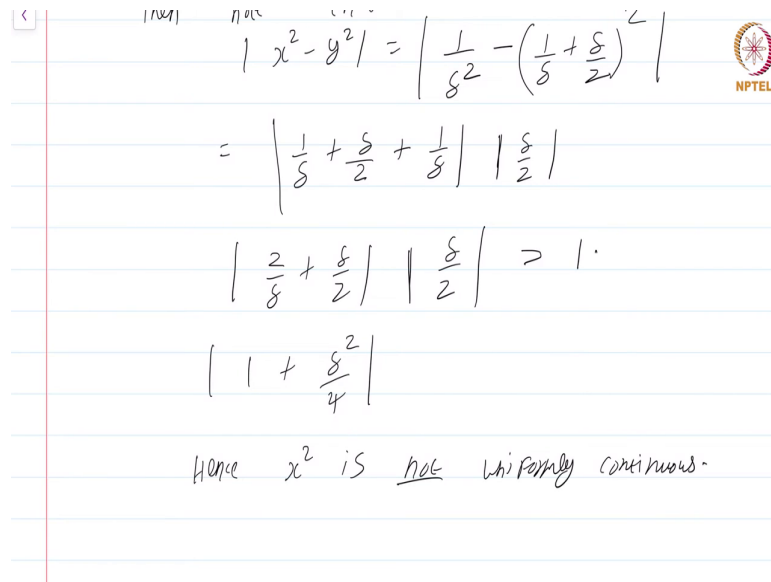 Then not
| x² - y² | = | 1/δ² - (1/δ + δ/2)² |
NPTEL
= | 1/δ + δ/2 + 1/δ | | δ/2 |
| 2/δ + δ/2 | | δ/2 | > 1.
| 1 + δ²/4 |
Hence x² is not uniformly continuous.